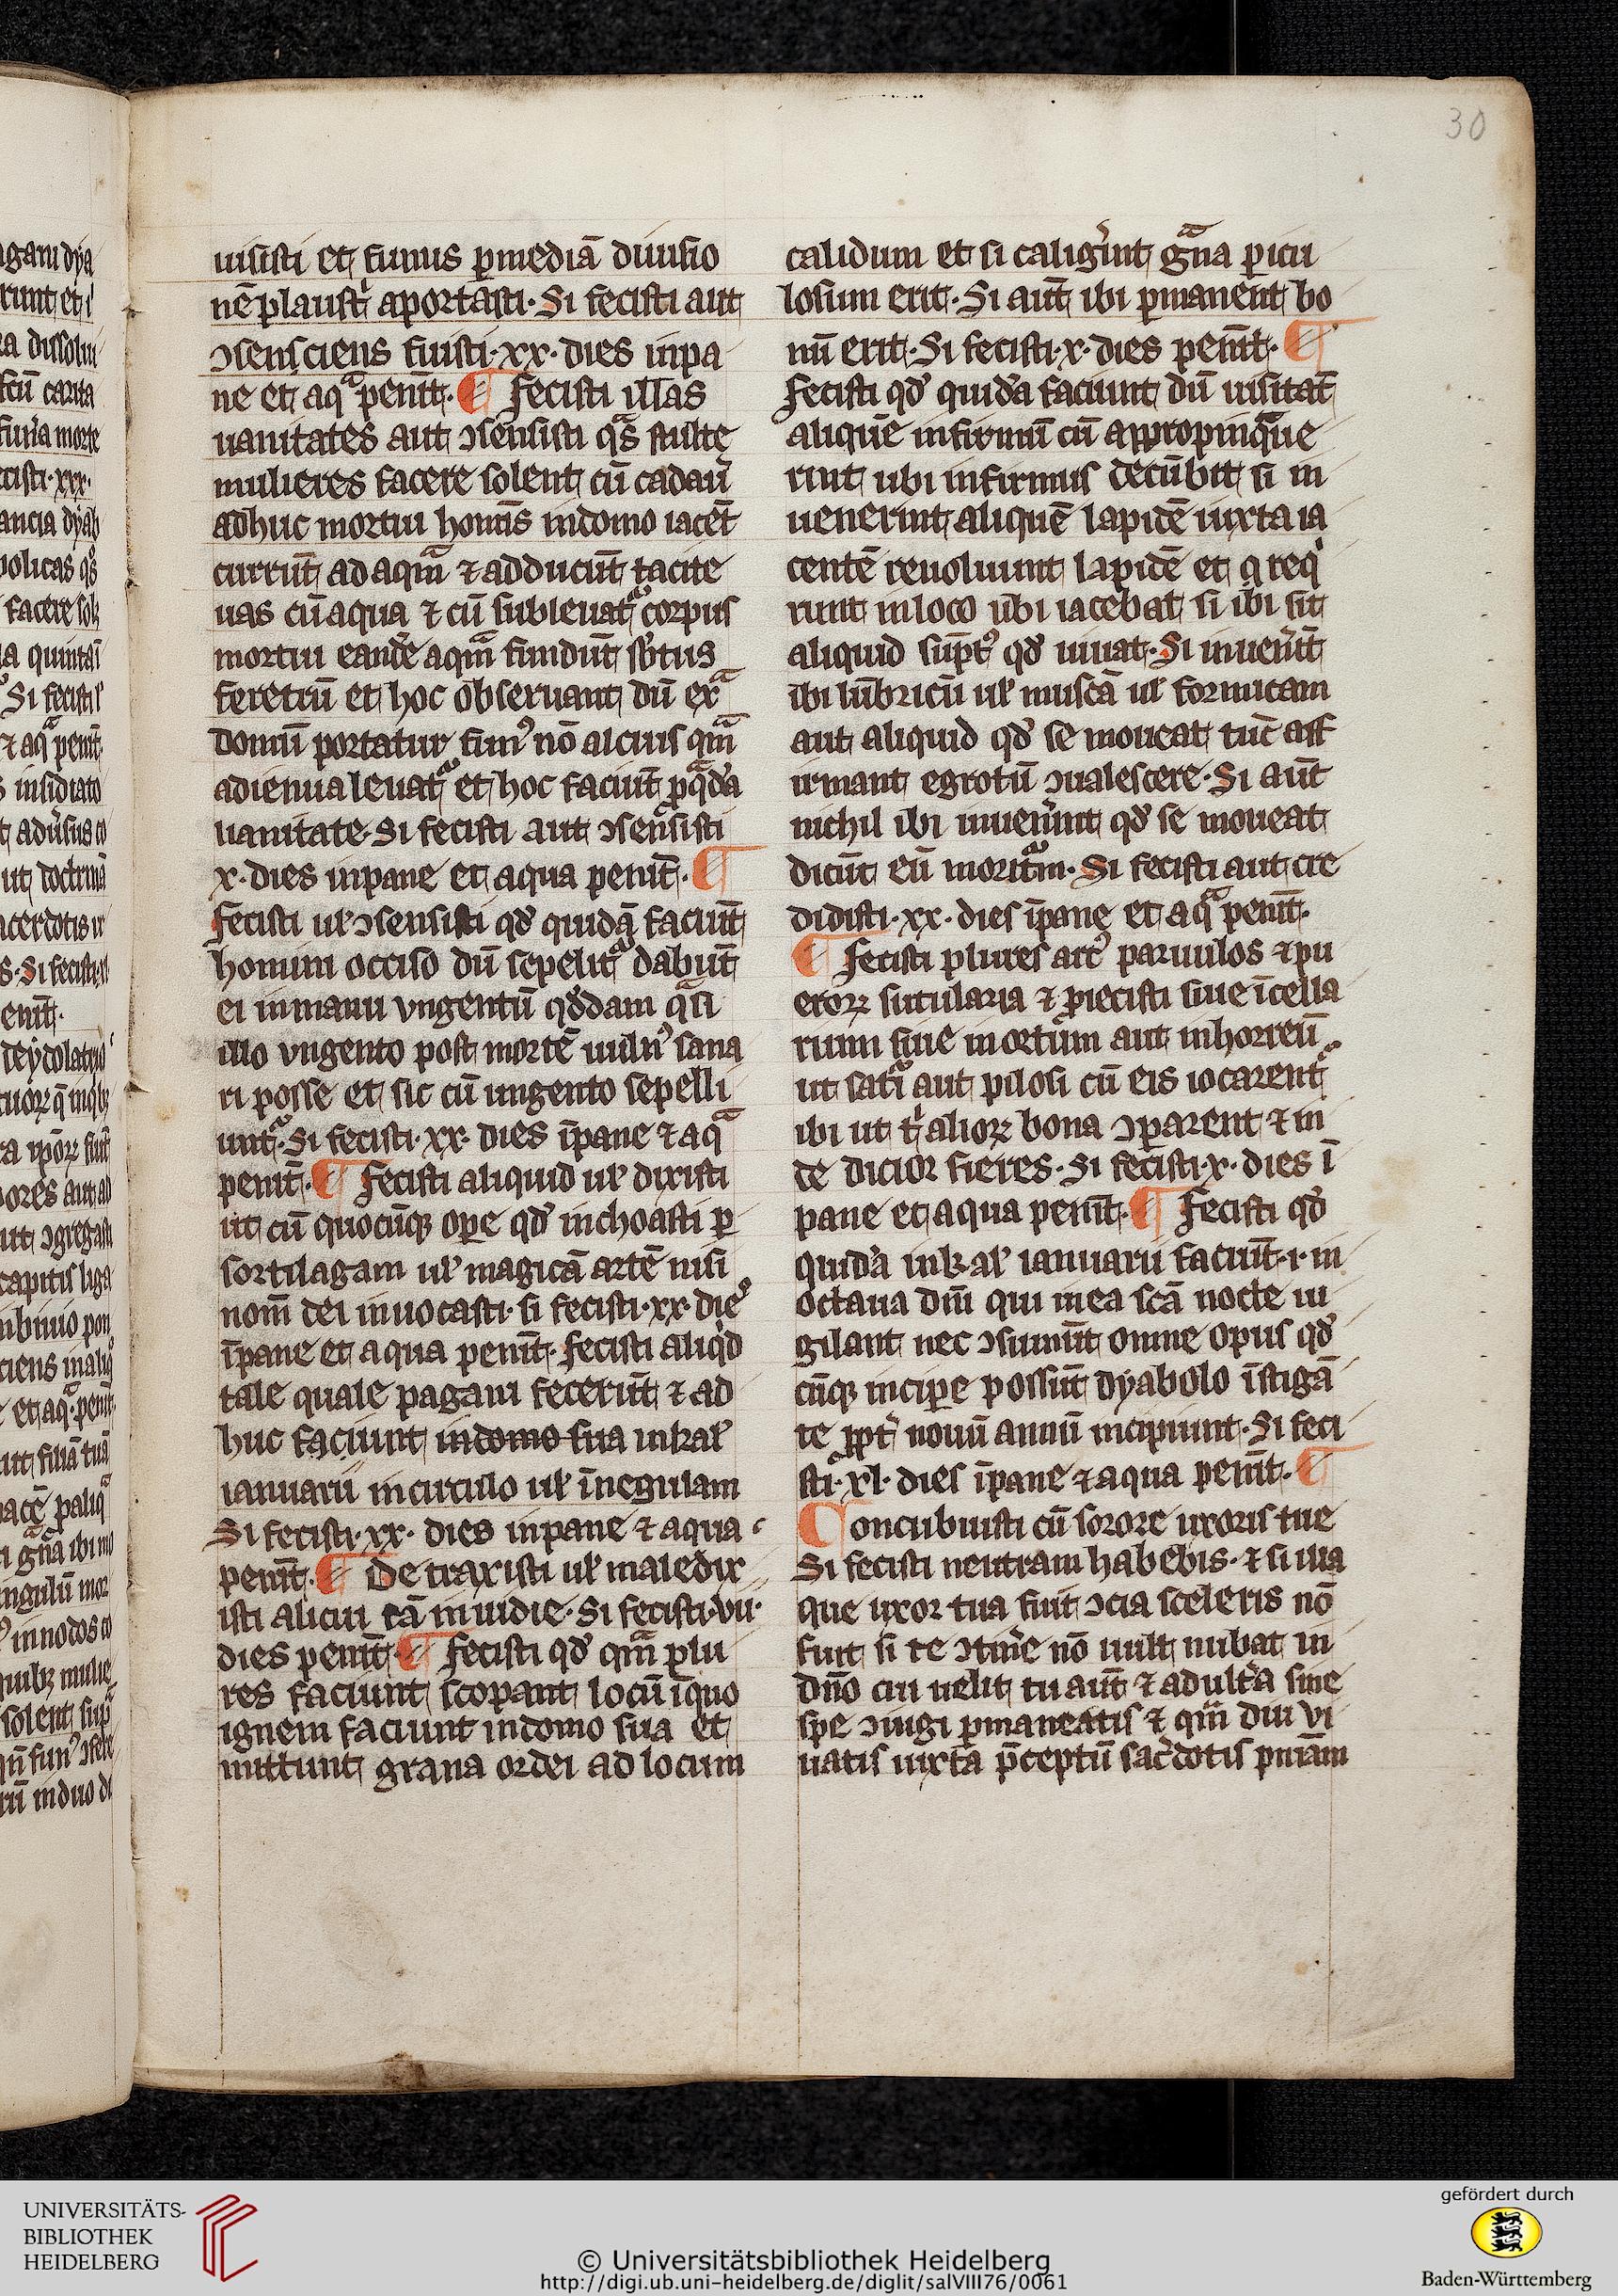 30
uisisti et funus ꝑmediā diuisio
nē plaustͥ aportasti. Si fecisti aut
ↄsensciens fuisti. xx. dies inpa
ne et aqͣ penit̄. ¶ Fecisti illas
uanitates aut ↄsensisti qͣs stulte
mulieres facere solent cū cadau̾
adhuc mortui homīs indomo iacēt
currūt ad aqͣm ⁊ adducūt tacite
uas cū aqua ⁊ cū subleuatͬ corpus
mortui eandē aqͣm fundūt sbtus
feretrū et hoc obseruant dū exͣ
domū portatur fun᷒ nō alcius qͣm
adienua leuatͬ et hoc faciūt ꝓ qͣdā
uanitate. Si fecisti aut ↄsensisti
x. dies inpane et aqua penit̄. ¶
Fecisti ul̓ ↄsensisti qd̓ quidā faciūt
homini occiso dū sepelitͬ dabūt
ei inmanu vngentū qd̓dam qͣsi
illo vngento post mortē uuln᷒ sana
ri posse et sic cū ungento sepelli
untͬ. Si fecisti. xx. dies īpane ⁊ aqͣ
penit̄. ¶ Fecisti aliquid ul̓ dixisti
ut cū quocūqꝫ oꝑe qd̓ inchoasti ꝑ
sortilagam ul̓ magicā artē nisi
nom̄ dei inuocasti. si fecisti. xx. dies
īpane et aqua penit̄. Fecisti aliqͥd
tale quale pagani fecerūt ⁊ ad
huc faciunt indomo sua inkal̓
ianuarii incirculo ul̓ īnegulam
Si fecisti. xx. dies inpane ⁊ aqua
penit̄. ¶ De traxisti ul̓ maledix
isti alicui cā inuidie. Si fecisti. vii.
dies penit̄ ¶ Fecisti qd̓ qͣm plu
res faciunt scopant locū īquo
ignem faciunt indomo sua et
mittunt grana ordei ad locum
calidum et si caligͥint gͣna ꝑicu
losum erit. Si aūt ibi ꝑmanēnt bo
nū erit. Si fecisti. x. dies penit̄. ¶
Fecisti qd̓ quidā faciunt dū uisitāt
aliquē infirmū cū appropinqͣue
rint ubi infirmus decūbit si in
uenerint aliquē lapidē iuxta ia
centē reuoluunt lapidē et qͥreqͥ
runt inloco ubi iacebat si ibi sit
aliquid supͭ᷒ qd̓ uiuat. Si inuen̓it̄
ibi lūbricū ul̓ muscā ul̓ formicam
aut aliquid qd̓ se moueat tūc aff
irmant egrotū ↄualescere. Si aūt
nichil ibi inuen̓int qd̓ se moueat
dicūt eū moritͬm. Si fecisti aut cre
didisti. xx. dies īpane et aqͣ penit̄.
¶ Fecisti plures arc᷒ paruulos ⁊ pu
eroꝝ sutularia ⁊ ꝓiecisti siue īcella
rium siue inortum aut inhorreū
ut satͥ aut pilosi cū eis iocarentͬ
ibi ut tͥ alioꝝ bona ↄꝑarent ⁊ in
de dicior fieres. Si fecisti. x. dies ī
pane et aqua penit̄. ¶ Fecisti qd̓
quidā inkal̓ ianuarii faciūt. i. in
octaua dn̄i qui inea scā nocte ui
gilant nec ↄsumūt omne opus qd̓
cūqꝫ inciꝑe possūt dyabolo īstigā
te ꝓptͥ nouū annū incipiunt. Si feci
sti. xl. dies īpane ⁊ aqua penit̄. ¶
Concubuisti cū sorore uxoris tue
Si fecisti neutram habebis. ⁊ si illa
que uxor tua fuit ↄcia sceleris nō
fuit si te ↄtine̓ nō uult nubat in
dn̄o cui uelit tu aūt ⁊ adult̓a sine
spe ↄiugi ꝑmaneatis ⁊ qͣmdiu vi
uatis iuxta p̄ceptū sac̓dotis pniā
UNIVERSITÄTS-
BIBLIOTHEK
HEIDELBERG
© Universitätsbibliothek Heidelberg
http://digi.ub.uni-heidelberg.de/diglit/salVIII76/0061
gefördert durch
Baden-Württemberg